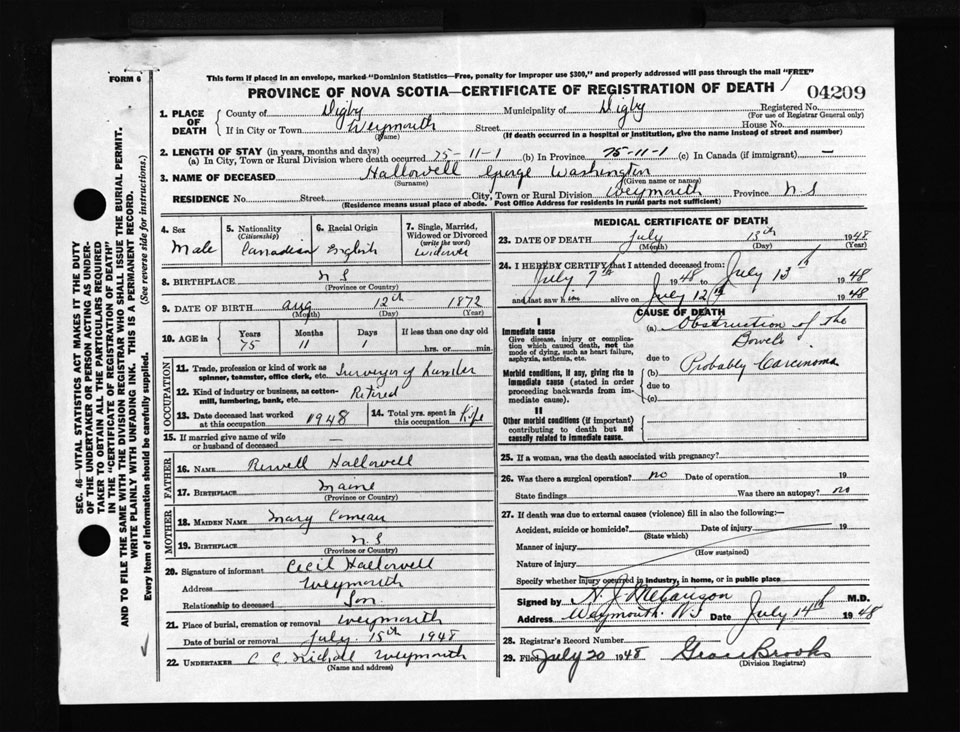 FORM 6
This form if placed in an envelope, marked "Dominion Statistics—Free, penalty for improper use $300," and properly addressed will pass through the mail "FREE"
PROVINCE OF NOVA SCOTIA—CERTIFICATE OF REGISTRATION OF DEATH
04209
1. PLACE OF DEATH
County of Digby Municipality of Digby Registered No.
(For use of Registrar General only)
If in City or Town Weymouth Street House No.
(Name) (If death occurred in a hospital or institution, give the name instead of street and number)
2. LENGTH OF STAY (in years, months and days)
(a) In City, Town or Rural Division where death occurred 75-11-1 (b) In Province 75-11-1 (c) In Canada (if immigrant) —
3. NAME OF DECEASED Hallowell George Washington
(Surname) (Given name or names)
RESIDENCE No. Street City, Town or Rural Division Weymouth Province N S
(Residence means usual place of abode. Post Office Address for residents in rural parts not sufficient)
4. Sex
Male
5. Nationality
(Citizenship)
Canadian
6. Racial Origin
English
7. Single, Married, Widowed or Divorced
(write the word)
Widower
8. BIRTHPLACE N S
(Province or Country)
9. DATE OF BIRTH Aug 12th 1872
(Month) (Day) (Year)
10. AGE in
Years Months Days If less than one day old
75 11 1 hrs. or min.
OCCUPATION
11. Trade, profession or kind of work as
spinner, teamster, office clerk, etc. Surveyor of Lumber
12. Kind of industry or business, as cotton-
mill, lumbering, bank, etc. Retired
13. Date deceased last worked
at this occupation 1948
14. Total yrs. spent in
this occupation Life
15. If married give name of wife
or husband of deceased —
FATHER
16. NAME Hallowell
17. BIRTHPLACE Maine
(Province or Country)
MOTHER
18. MAIDEN NAME Mary Comeau
19. BIRTHPLACE N. S
(Province or Country)
20. Signature of informant Cecil Hallowell
Address Weymouth
Relationship to deceased Son
21. Place of burial, cremation or removal Weymouth
Date of burial or removal July. 15th 1948
22. UNDERTAKER C C Weymouth
(Name and address)
MEDICAL CERTIFICATE OF DEATH
23. DATE OF DEATH July 13th 1948
(Month) (Day) (Year)
24. I HEREBY CERTIFY that I attended deceased from:
July 7th 1948 to July 13th 1948
and last saw him alive on July 12th 1948
CAUSE OF DEATH
I
Immediate cause
Give disease, injury or complica-
tion which caused death, not the
mode of dying, such as heart failure,
asphyxia, asthenia, etc.
(a) Obstruction of the
Bowels
due to
Morbid conditions, if any, giving rise to
immediate cause (stated in order
proceeding backwards from im-
mediate cause).
(b) Probably Carcinoma
due to
(c)
II
Other morbid conditions (if important)
contributing to death but not
causally related to immediate cause.
25. If a woman, was the death associated with pregnancy?
26. Was there a surgical operation? no Date of operation 19
State findings Was there an autopsy? no
27. If death was due to external causes (violence) fill in also the following:—
Accident, suicide or homicide? Date of injury 19
(State which)
Manner of injury
(How sustained)
Nature of injury
Specify whether injury occurred in industry, in home, or in public place
Signed by M.D.
Address Weymouth. N.S Date July 14th 1948
28. Registrar's Record Number
29. Filed July 20 1948 Brooks
(Division Registrar)
SEC. 46—VITAL STATISTICS ACT MAKES IT THE DUTY
OF THE UNDERTAKER OR PERSON ACTING AS UNDER-
TAKER TO OBTAIN ALL THE PARTICULARS REQUIRED
IN THE "CERTIFICATE OF REGISTRATION OF DEATH"
AND TO FILE THE SAME WITH THE DIVISION REGISTRAR WHO SHALL ISSUE THE BURIAL PERMIT.
WRITE PLAINLY WITH UNFADING INK. THIS IS A PERMANENT RECORD.
Every item of information should be carefully supplied. (See reverse side for instructions.)